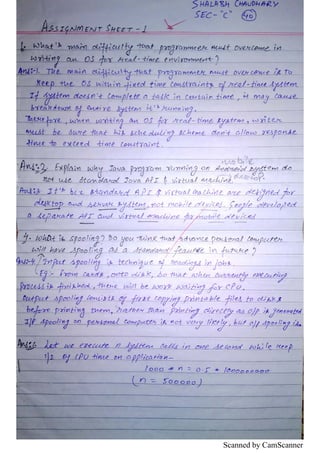 SHALABH CHAUDHARY
SEC-"C" 40
ASSIGNMENT SHEET-1
1. What's main difficulty that programmer must overcome in
writing an OS for real-time environment?
Ans:1. The main difficulty that programmer must overcome is to
keep the OS within fixed time constraints of real-time system
If system doesn't complete a task in certain time, it may cause
breakdown of entire system it's running.
Therefore, when writing an OS for real-time system, writer
must be sure that his scheduling scheme don't allow response
time to exceed time constraint.
Ans:2 Explain why Java program running on Android system do
not use standard Java API & virtual machine
Ans:2 It's b'cz standard API & virtual machine are designed for
desktop and server system, not mobile devices. Google developed
a seperate API and virtual machine for mobile devices
4. What is spooling? Do you think that advance personal computer
will have spooling as a standard feature in future?
Ans:4. Input spooling is technique of reading in jobs.
Eg- from cards, onto disk, so that when currently executing
process is finished, there will be work waiting for CPU.
Output spooling consists of first copying printable files to disk
before printing them, rather than printing directly as o/p is generated
I/p spooling on personal computer is not very likely, but o/p spooling is
Ans:5 Let we execute n system calls in one second while keep
1/2 of CPU time on application-
1000 * n = 0.5 * 1000000000
(n = 500000)
Scanned by CamScanner